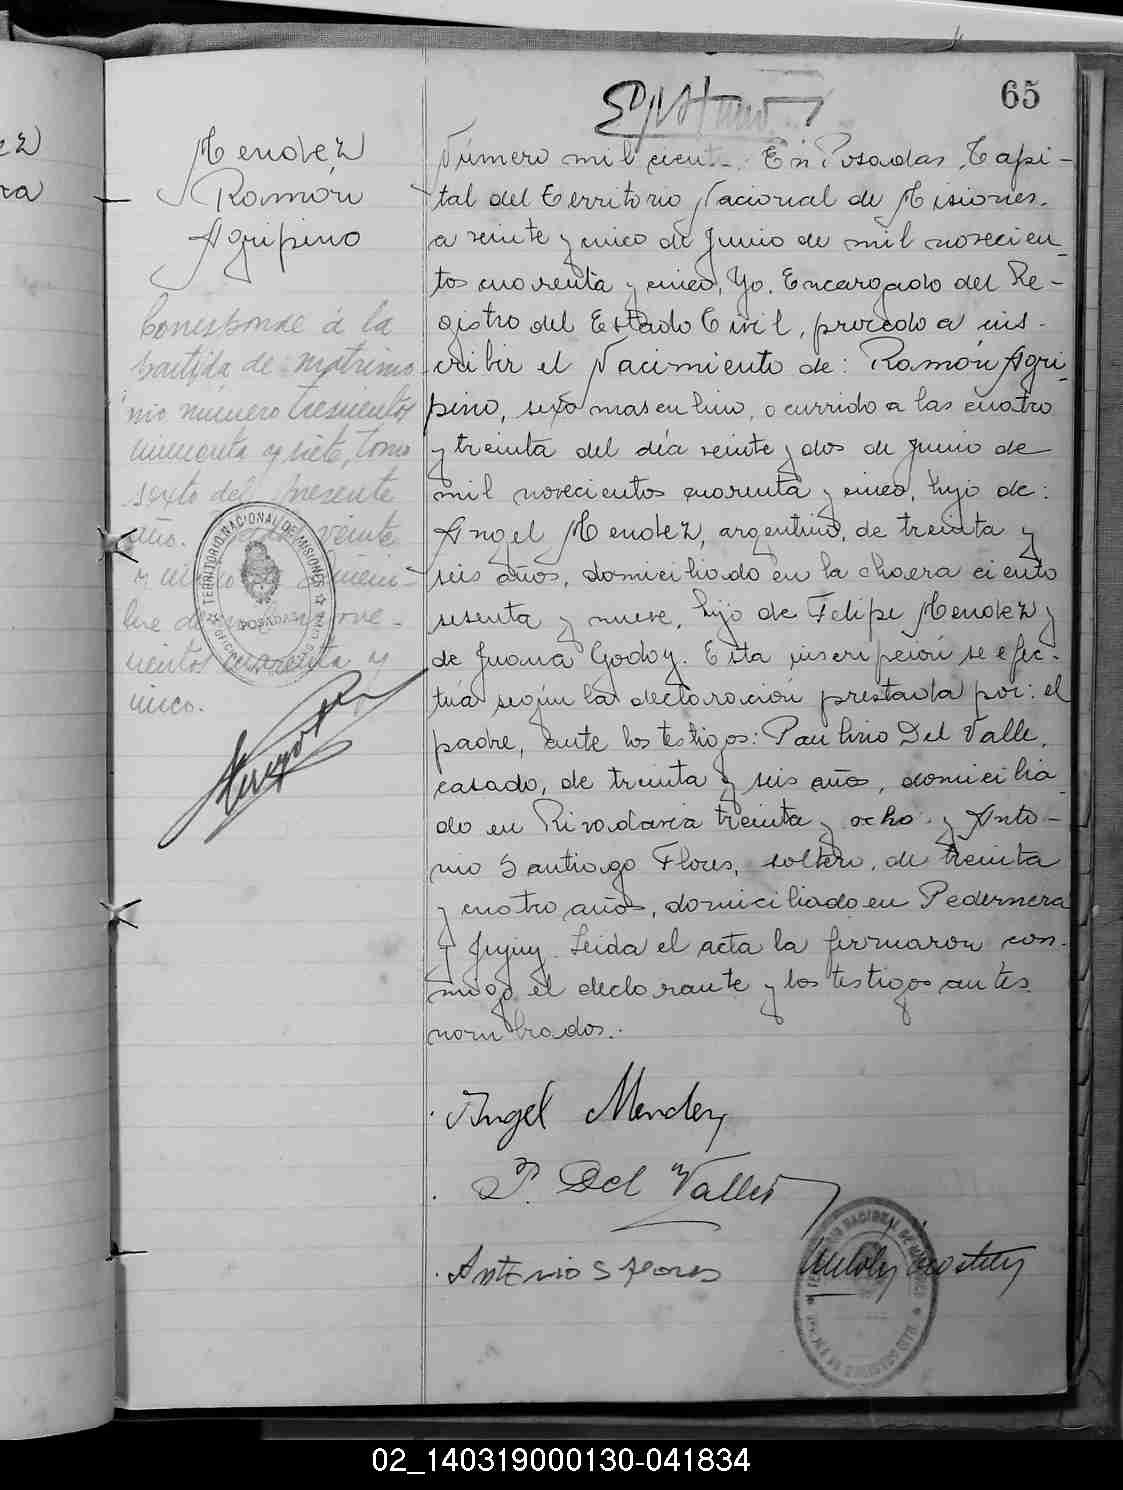 65
Mendez
Ramón
Agripino
Corresponde á la
partida de matrimo
nio número trescientos
cincuenta y siete, tomo
sexto del presente
año. veinte
y
bre de nove-
cientos cuarenta y
cinco.
TERRITORIO NACIONAL DE MISIONES
POSADAS
Número mil ciento. En Posadas, Capi-
tal del Territorio Nacional de Misiones,
a veinte y cinco de Junio de mil novecien-
tos cuarenta y cinco, Yo, Encargado del Re-
gistro del Estado Civil, procedo a ins-
cribir el Nacimiento de: Ramón Agri-
pino, sexo masculino, ocurrido a las cuatro
y treinta del día veinte y dos de Junio de
mil novecientos cuarenta y cinco, hijo de:
Angel Mendez, argentino, de treinta y
seis años, domiciliado en la chacra ciento
sesenta y nueve, hijo de Felipe Mendez y
de Juana Godoy. Esta inscripción se efec-
túa según la declaración prestada por: el
padre, ante los testigos: Paulino Del Valle,
casado, de treinta y seis años, domicilia-
do en Rivadavia treinta y ocho y Anto-
nio Santiago Flores, soltero, de treinta
y cuatro años, domiciliado en Pedernera
y Jujuy. Leida el acta la firmaron con-
migo el declarante y los testigos antes
nombrados.
Angel Mendez
P. Del Valle
Antonio S Flores
02_140319000130-041834